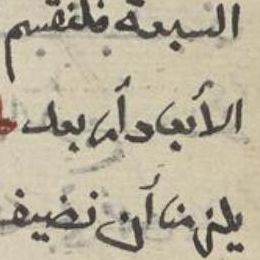 السبعة فلنقسم
الأبعاد أما بعد
يلزمنا أن نضيف